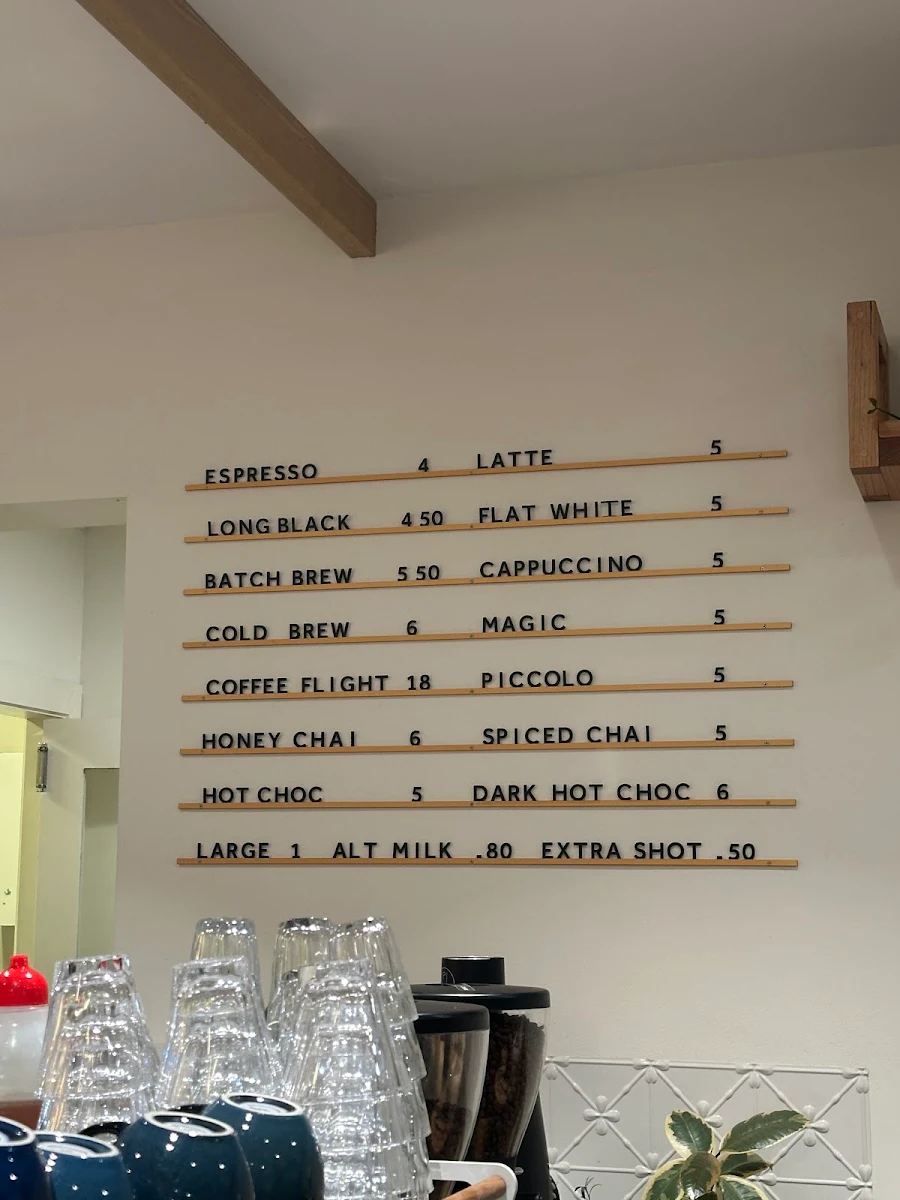 ESPRESSO 4 LATTE 5
LONG BLACK 4 50 FLAT WHITE 5
BATCH BREW 5 50 CAPPUCCINO 5
COLD BREW 6 MAGIC 5
COFFEE FLIGHT 18 PICCOLO 5
HONEY CHAI 6 SPICED CHAI 5
HOT CHOC 5 DARK HOT CHOC 6
LARGE 1 ALT MILK .80 EXTRA SHOT .50